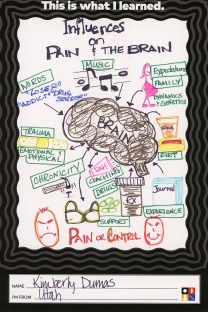 This is what I learned.
Influences
on
PAIN & THE BRAIN
MUSIC
Expectations
WORDS
FAMILY
"LOSER"
DYNAMICS
"ADDICT" "DRUG
& GENETICS
SEEKER"
BRAIN
TRAUMA
EMOTIONAL
PHYSICAL
DIET
CHRONICITY
COACHING
Journal
DRUGS
RX
SUPPORT
EXPERIENCE
PAIN OR CONTROL
NAME Kimberly Dumas
I'M FROM Utah